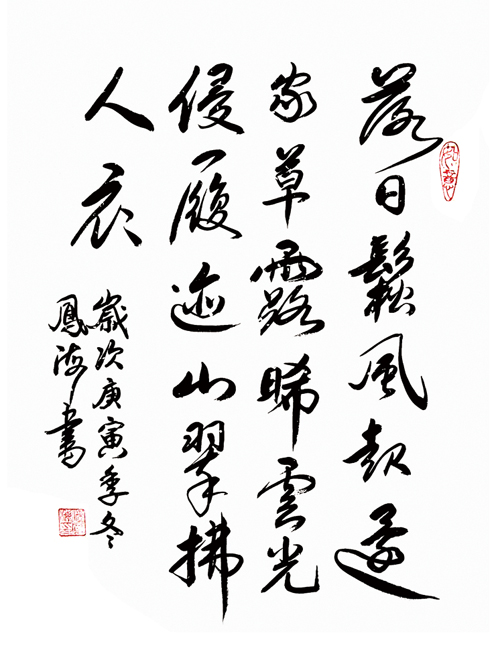 落日鬆風起還
家草露晞雲光
侵履迹山翠拂
人衣
歲次庚寅季冬
鳳海書